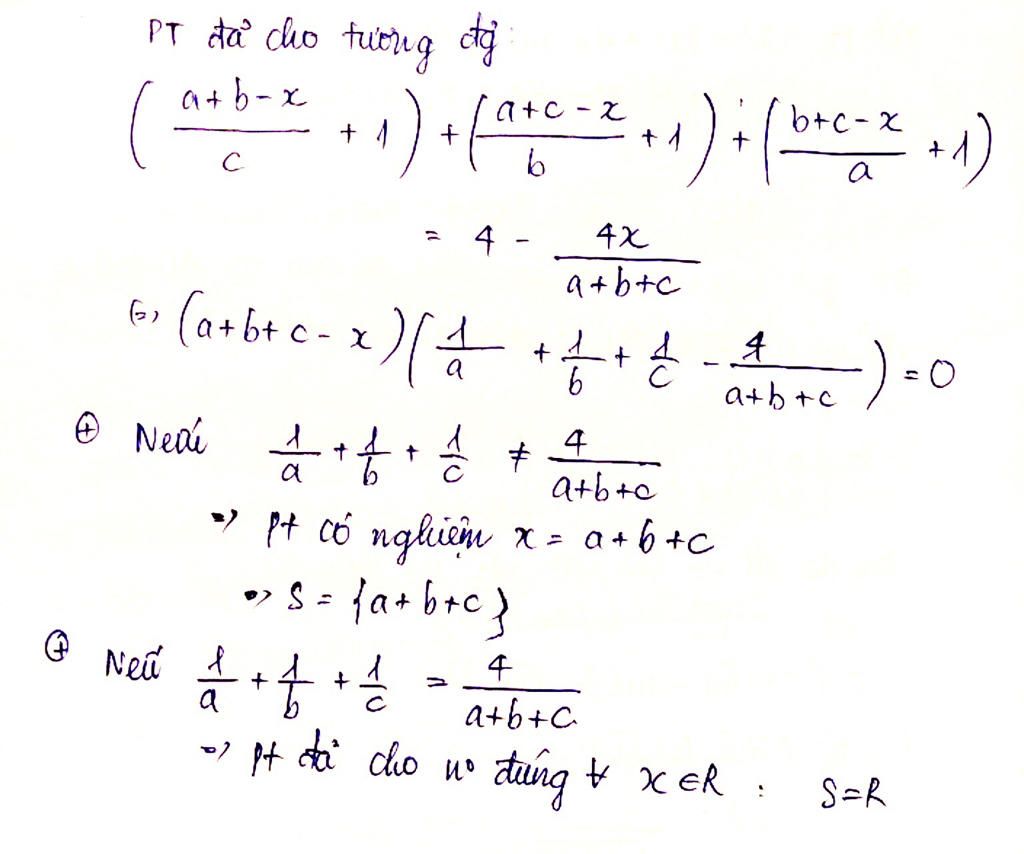 PT đã cho tương đg:
( (a+b-x)/c + 1 ) + ( (a+c-x)/b + 1 ) + ( (b+c-x)/a + 1 )
= 4 - 4x/(a+b+c)
(=) (a+b+c-x)( 1/a + 1/b + 1/c - 4/(a+b+c) ) = 0
⊕ Nếu 1/a + 1/b + 1/c ≠ 4/(a+b+c)
=> pt có nghiệm x = a+b+c
=> S = {a+b+c}
⊕ Nếu 1/a + 1/b + 1/c = 4/(a+b+c)
=> pt đã cho nº đúng ∀ x ∈ R : S=R